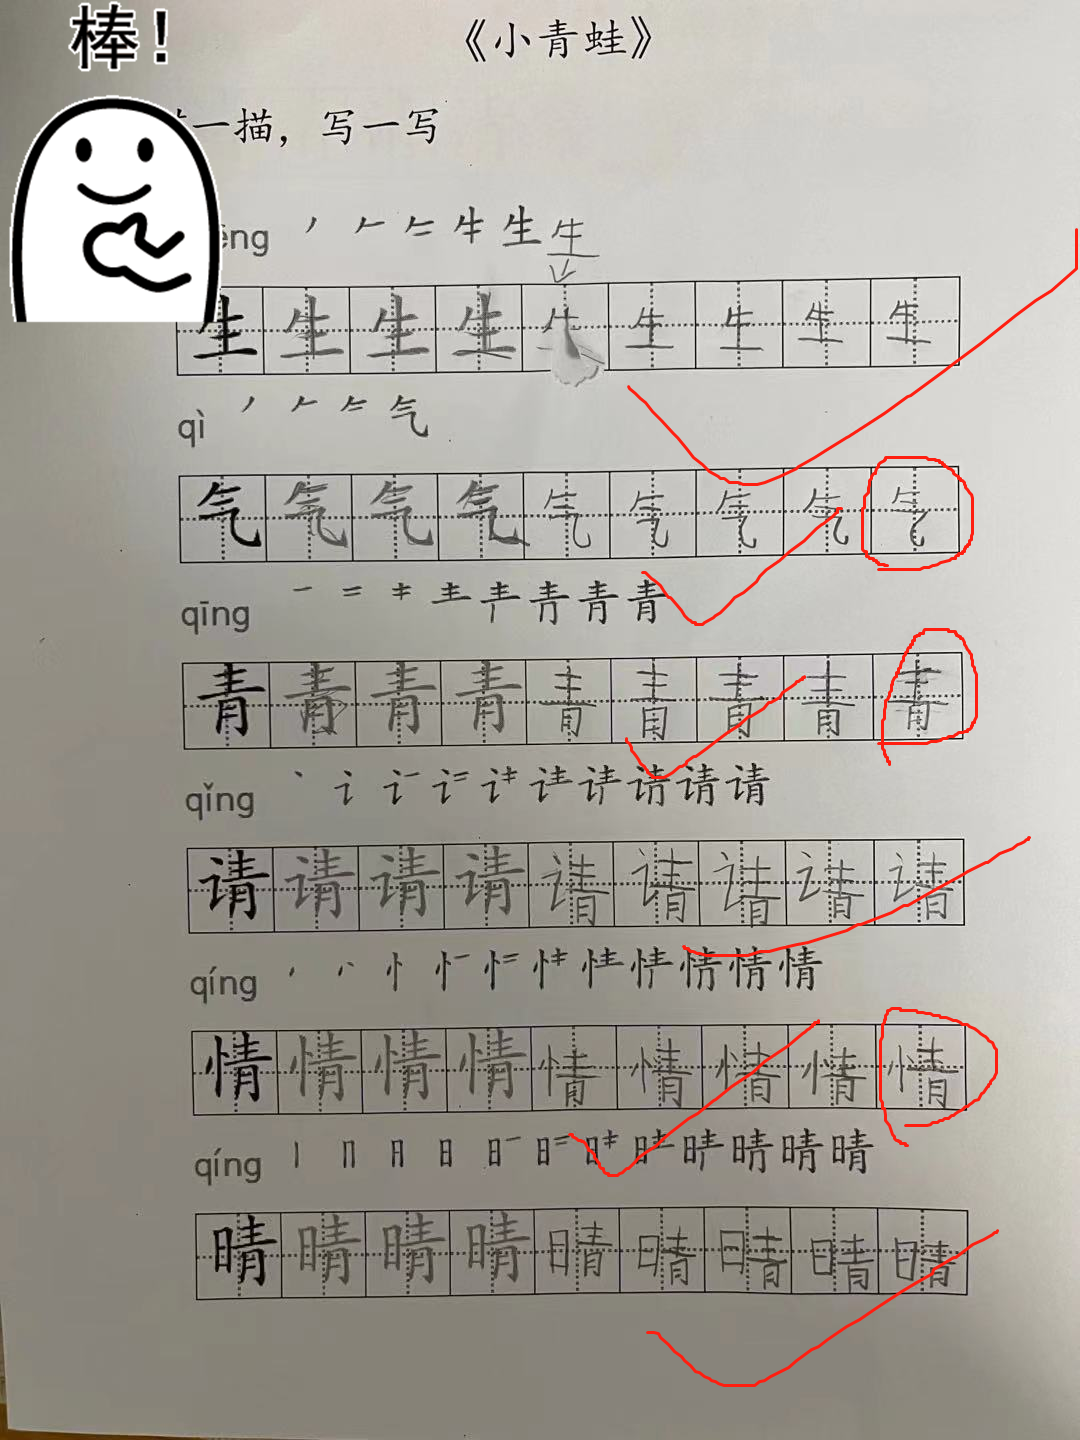 棒！
《小青蛙》
一描，写一写
ēng 丿 𠂉 牛 生 生
生 生 生 生 生 生 生 生 生
qì 丿 𠂉 气
气 气 气 气 气 气 气 气 气
qīng 一 二 丰 青
青 青 青 青 青 青 青 青 青
qǐng 丶 讠 请 请
请 请 请 请 请 请 请 请 请
qíng 忄 情 情 情
情 情 情 情 情 情 情 情 情
qíng 丨 冂 日 日 晴 晴 晴
晴 晴 晴 晴 晴 晴 晴 晴 晴